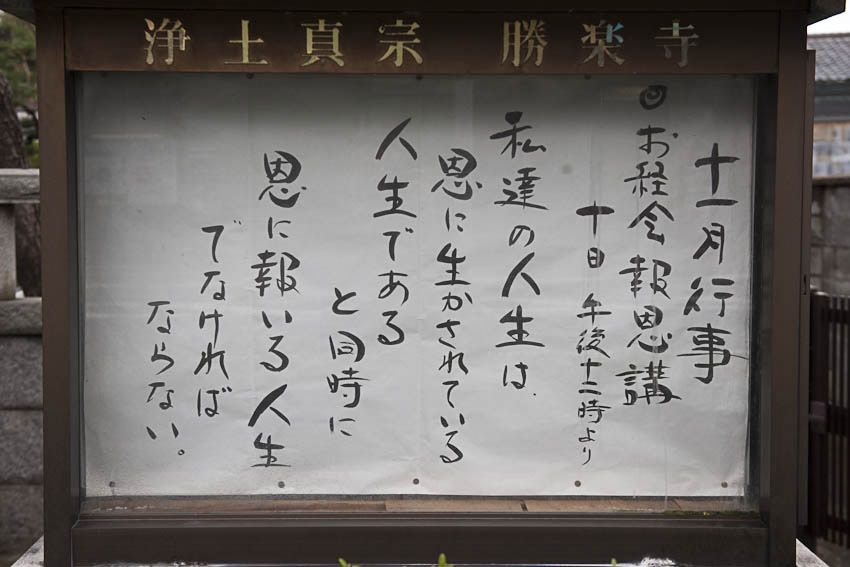 浄土真宗 勝楽寺
十一月行事
◎お経会報恩講
十日 午後十二時より
私達の人生は、
恩に生かされている
人生である
と同時に
恩に報いる人生
でなければ
ならない。